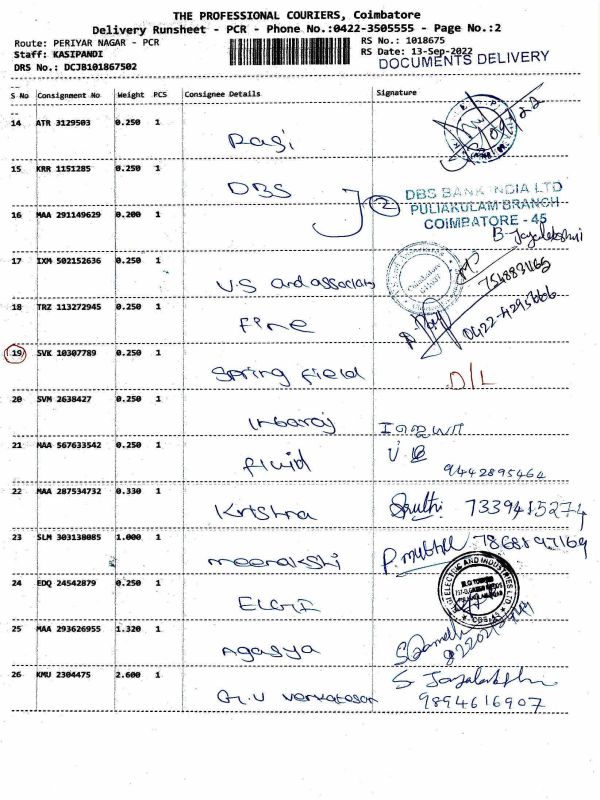 THE PROFESSIONAL COURIERS, Coimbatore
Delivery Runsheet - PCR - Phone No.:0422-3505555 - Page No.:2
Route: PERIYAR NAGAR - PCR
RS No.: 1018675
Staff: KASIPANDI
RS Date: 13-Sep-2022
DRS No.: DCJB101867502
DOCUMENTS DELIVERY
S No Consignment No Weight PCS Consignee Details Signature
14 ATR 3129503 0.250 1
Rasi
15 KRR 1151285 0.250 1
DBS
2
DBS BANK INDIA LTD
PULIAKULAM BRANCH
COIMBATORE - 45
16 MAA 291149629 0.200 1
17 IXM 502152636 0.250 1
V.S and associats
18 TRZ 113272945 0.250 1
Fine
0422-4295666
19 SVK 10307789 0.250 1
Spring Field D/L
20 SVM 2638427 0.250 1
Inbaraj
21 MAA 567633542 0.250 1
Fluid
9442895464
22 MAA 287534732 0.330 1
Krishna 7339415274
23 SLM 303138085 1.000 1
meenakshi
24 EDQ 24542879 0.250 1
ELGI
25 MAA 293626955 1.320 1
Agasya
26 KMU 2304475 2.600 1
G.V venkatesan
9894616907